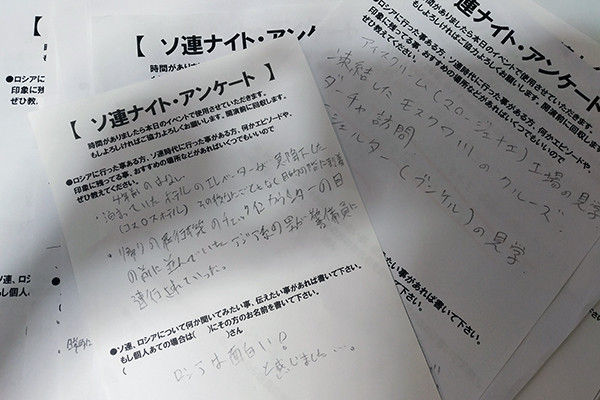 【 ソ連ナイト・アンケート 】
時間がありましたら本日のイベントで使用させていただきます。
もしよろしければご協力よろしくお願いします。開演前に回収します。
●ロシアに行った事ある方、ソ連時代に行った事ある方、何かエピソードや、
印象に残ってる事、おすすめの場所などがあればいくつでもいいので
ぜひ教えてください。
泊まっていたホテルのエレベーターが
(コスモスホテル)
帰りの飛行場のチェックインカウンターの目
の前に並んでいたアジア系の男が警備員に
連行されていった。
●ソ連、ロシアについて何か聞いてみたい事、伝えたい事があれば書いて下さい。
もし個人あての場合は( )にその方のお名前を書いて下さい。
( )さん
ロシアは面白い!
と感じました…。
【 ソ連ナイト・アン
時間がありま
もしよろし
【
●ロシアに
印象に残
ぜひ教え
●ソ連、ロシ
もし個人
ソ連ナイト・アンケート
時間がありましたら本日のイベントで使用させていただきます。
もしよろしければご協力よろしくお願いします。開演前に回収します。
に行った事ある方、ソ連時代に行った事ある方、何かエピソードや、
印象に残ってる事、おすすめの場所などがあればいくつでもいいので
ぜひ教えてください。
アイスクリーム 工場の見学
凍結したモスクワ川のクルーズ
ダーチャ訪問
シェルター(ブンケル)の見学
たい事があれば書いて下さい。
書いて下さい。